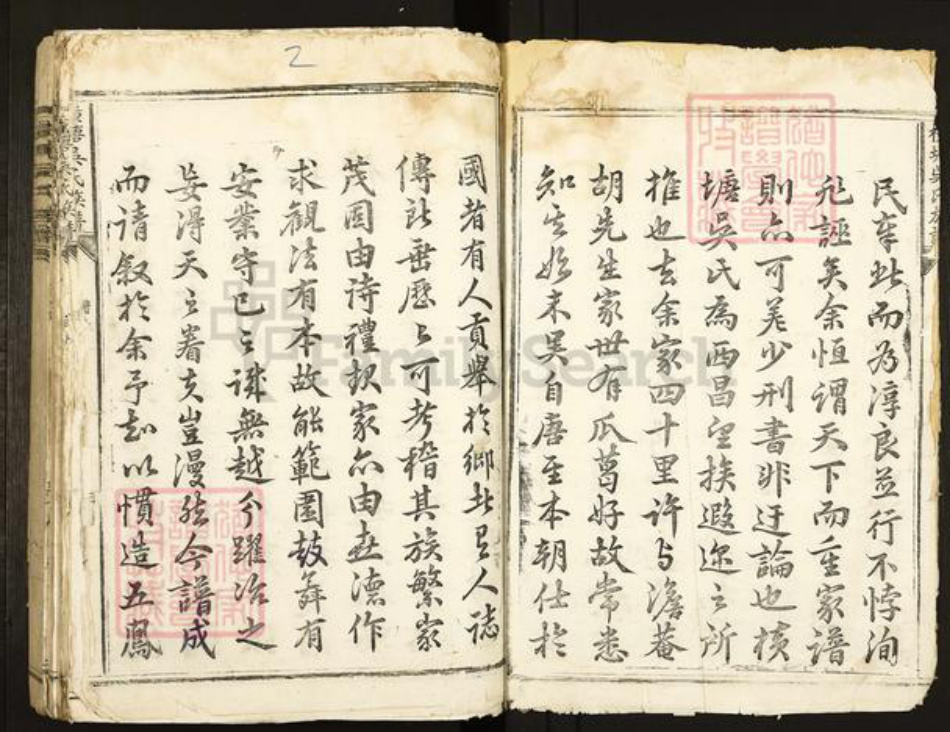 民率此而为淳良并行不悖洵
非誣矣余恒謂天下而重家譜
則亦可羙少刑書非迂論也核
塘吳氏為西昌望族遐迩之所
推也去余家四十里许与澹菴
胡先生家世有瓜葛好故常悉
知其始末吴自唐至本朝仕於
國者有人貢舉於鄉者有人誌
傳所垂歷々可考稽其族繁家
茂固由诗禮放家亦由世德作
求觀法有本故能範圍鼓舞有
安業守已之诚無越分躍冶之
妄得天之眷夫豈漫然今譜成
而请叙於余予却以慣造五鳳
2
FamilySearch